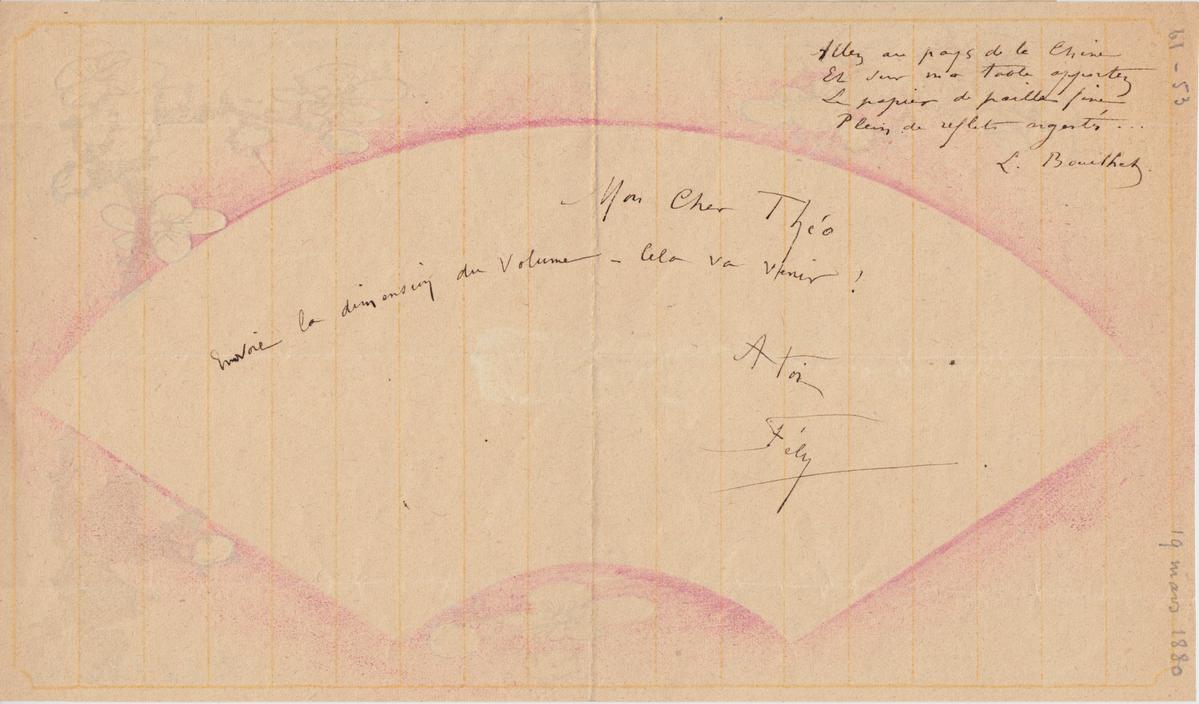 Allez au pays de la Chine
Et sur ma table apportez
Le papier de paille fine
Plein de reflets argentés ...
L. Bouilhet.
Mon Cher Théo
Envoie la dimension du Volume – Cela va venir !
A toi
Fély
61-53
19 mars 1880